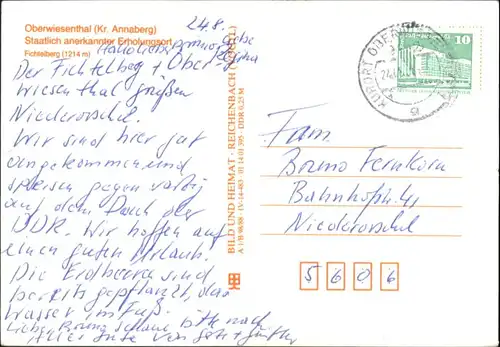 Oberwiesenthal (Kr. Annaberg)
Staatlich anerkannter Erholungsort
Fichtelberg (1214 m)
24.8.
Der Fichtelberg + Ober-
wiesenthal grüßen
Niederorschel.
Wir sind hier gut
angekommen und
speisen gegen
auf dem Dach der
DDR. Wir hoffen auf
einen guten Urlaub.
Die Erdbeeren sind
bereits gepflanzt, das
Wasser im Faß.
Lieber Bruno schaue bitte nach
Alles Gute von
BILD UND HEIMAT · REICHENBACH (VOGTL.)
KURORT
10
Fam.
Bruno Fernkorn
Bahnhofstr. 41
Niederorschel
5 6 0 6